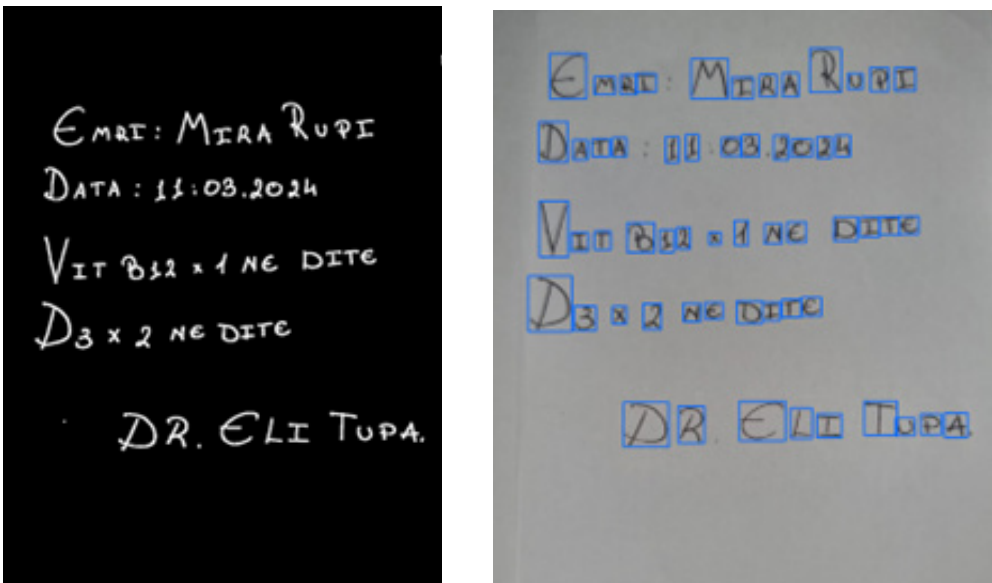 EMRI: MIRA RUPI
DATA: 11:03.2024
VIT B12 x 1 NE DITE
D3 x 2 NE DITE
DR. ELI TUPA.
EMRI: MIRA RUPI
DATA: 11:03.2024
VIT B12 x 1 NE DITE
D3 x 2 NE DITE
DR. ELI TUPA.